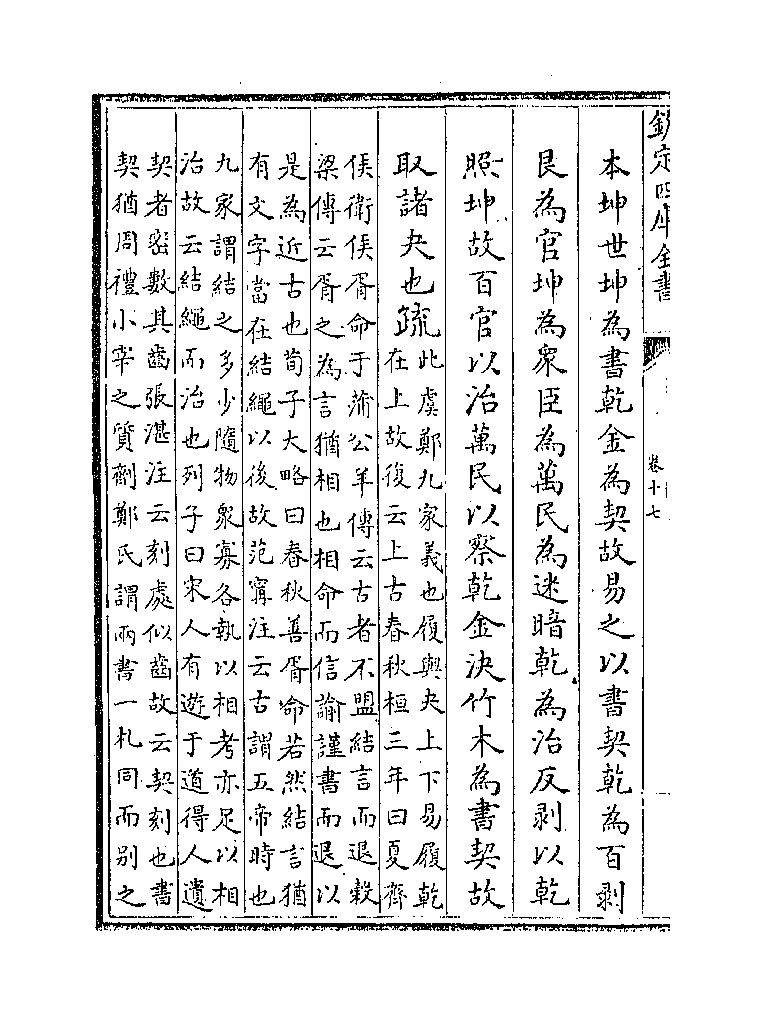 欽定四庫全書
卷十七
本坤世坤為書乾金為契故易之以書契乾為百剥
艮為官坤為衆臣為萬民為迷暗乾為治反剥以乾
照坤故百官以治萬民以察乾金決竹木為書契故
取諸夬也疏
此虞鄭九家義也履與夬上下易履乾
在上故復云上古春秋桓三年曰夏齊
侯衛侯胥命于蒲公羊傳云古者不盟結言而退榖
梁傳云胥之為言猶相也相命而信諭謹書而退以
是為近古也荀子大略曰春秋善胥命若然結言猶
有文字當在結繩以後故范甯注云古謂五帝時也
九家謂結之多少隨物衆寡各執以相考亦足以相
治故云結繩而治也列子曰宋人有遊于道得人遺
契者密數其齒張湛注云刻處似齒故云契刻也書
契猶周禮小宰之質劑鄭氏謂兩書一札同而别之